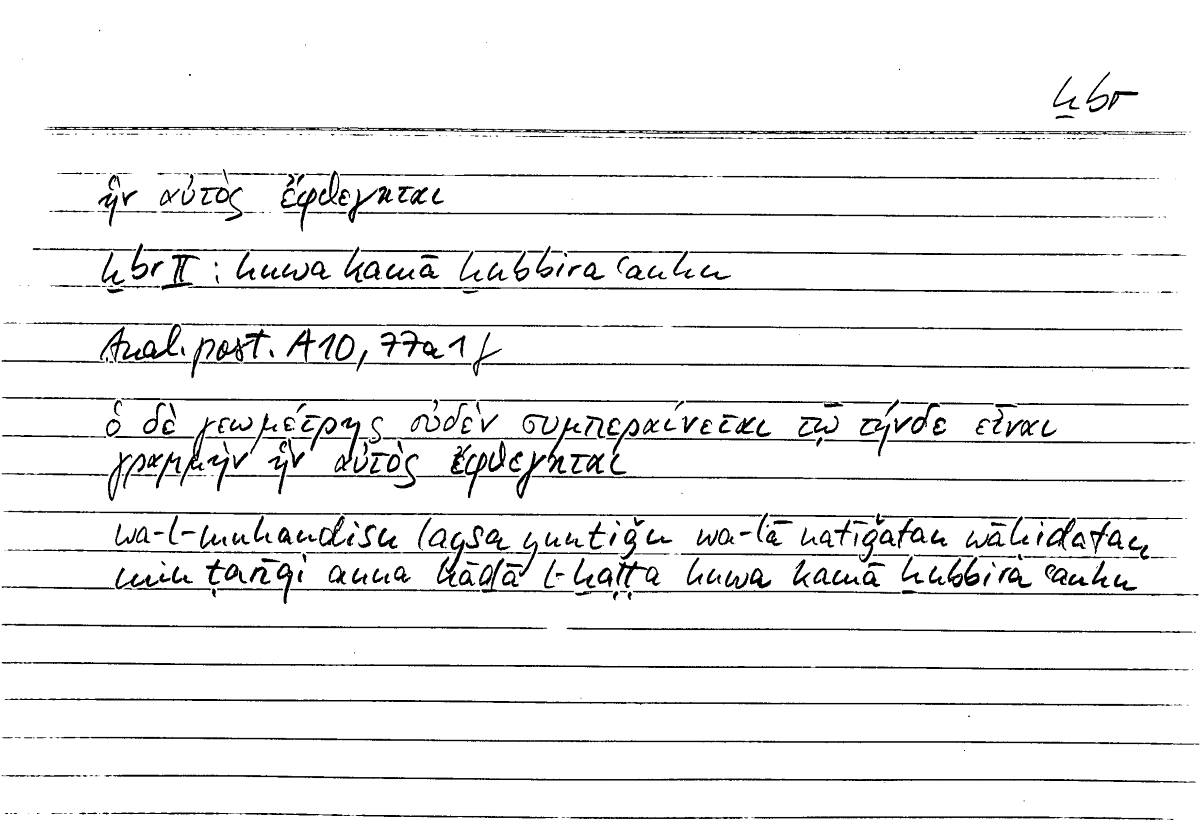 ḫbr
ἣν αὐτὸς ἔφθεγκται
ḫbr II : huwa kamā ḫubbira ʿanhu
Anal. post. A 10, 77a1 f
ὁ δὲ γεωμέτρης οὐδὲν συμπεραίνεται τῷ τήνδε εἶναι
γραμμὴν ἣν αὐτὸς ἔφθεγκται
wa-l-muhandisu laysa yuntiǧu wa-lā natīǧatan wāḥidatan
min ṭarīqi anna hāḏā l-ḫaṭṭa huwa kamā ḫubbira ʿanhu